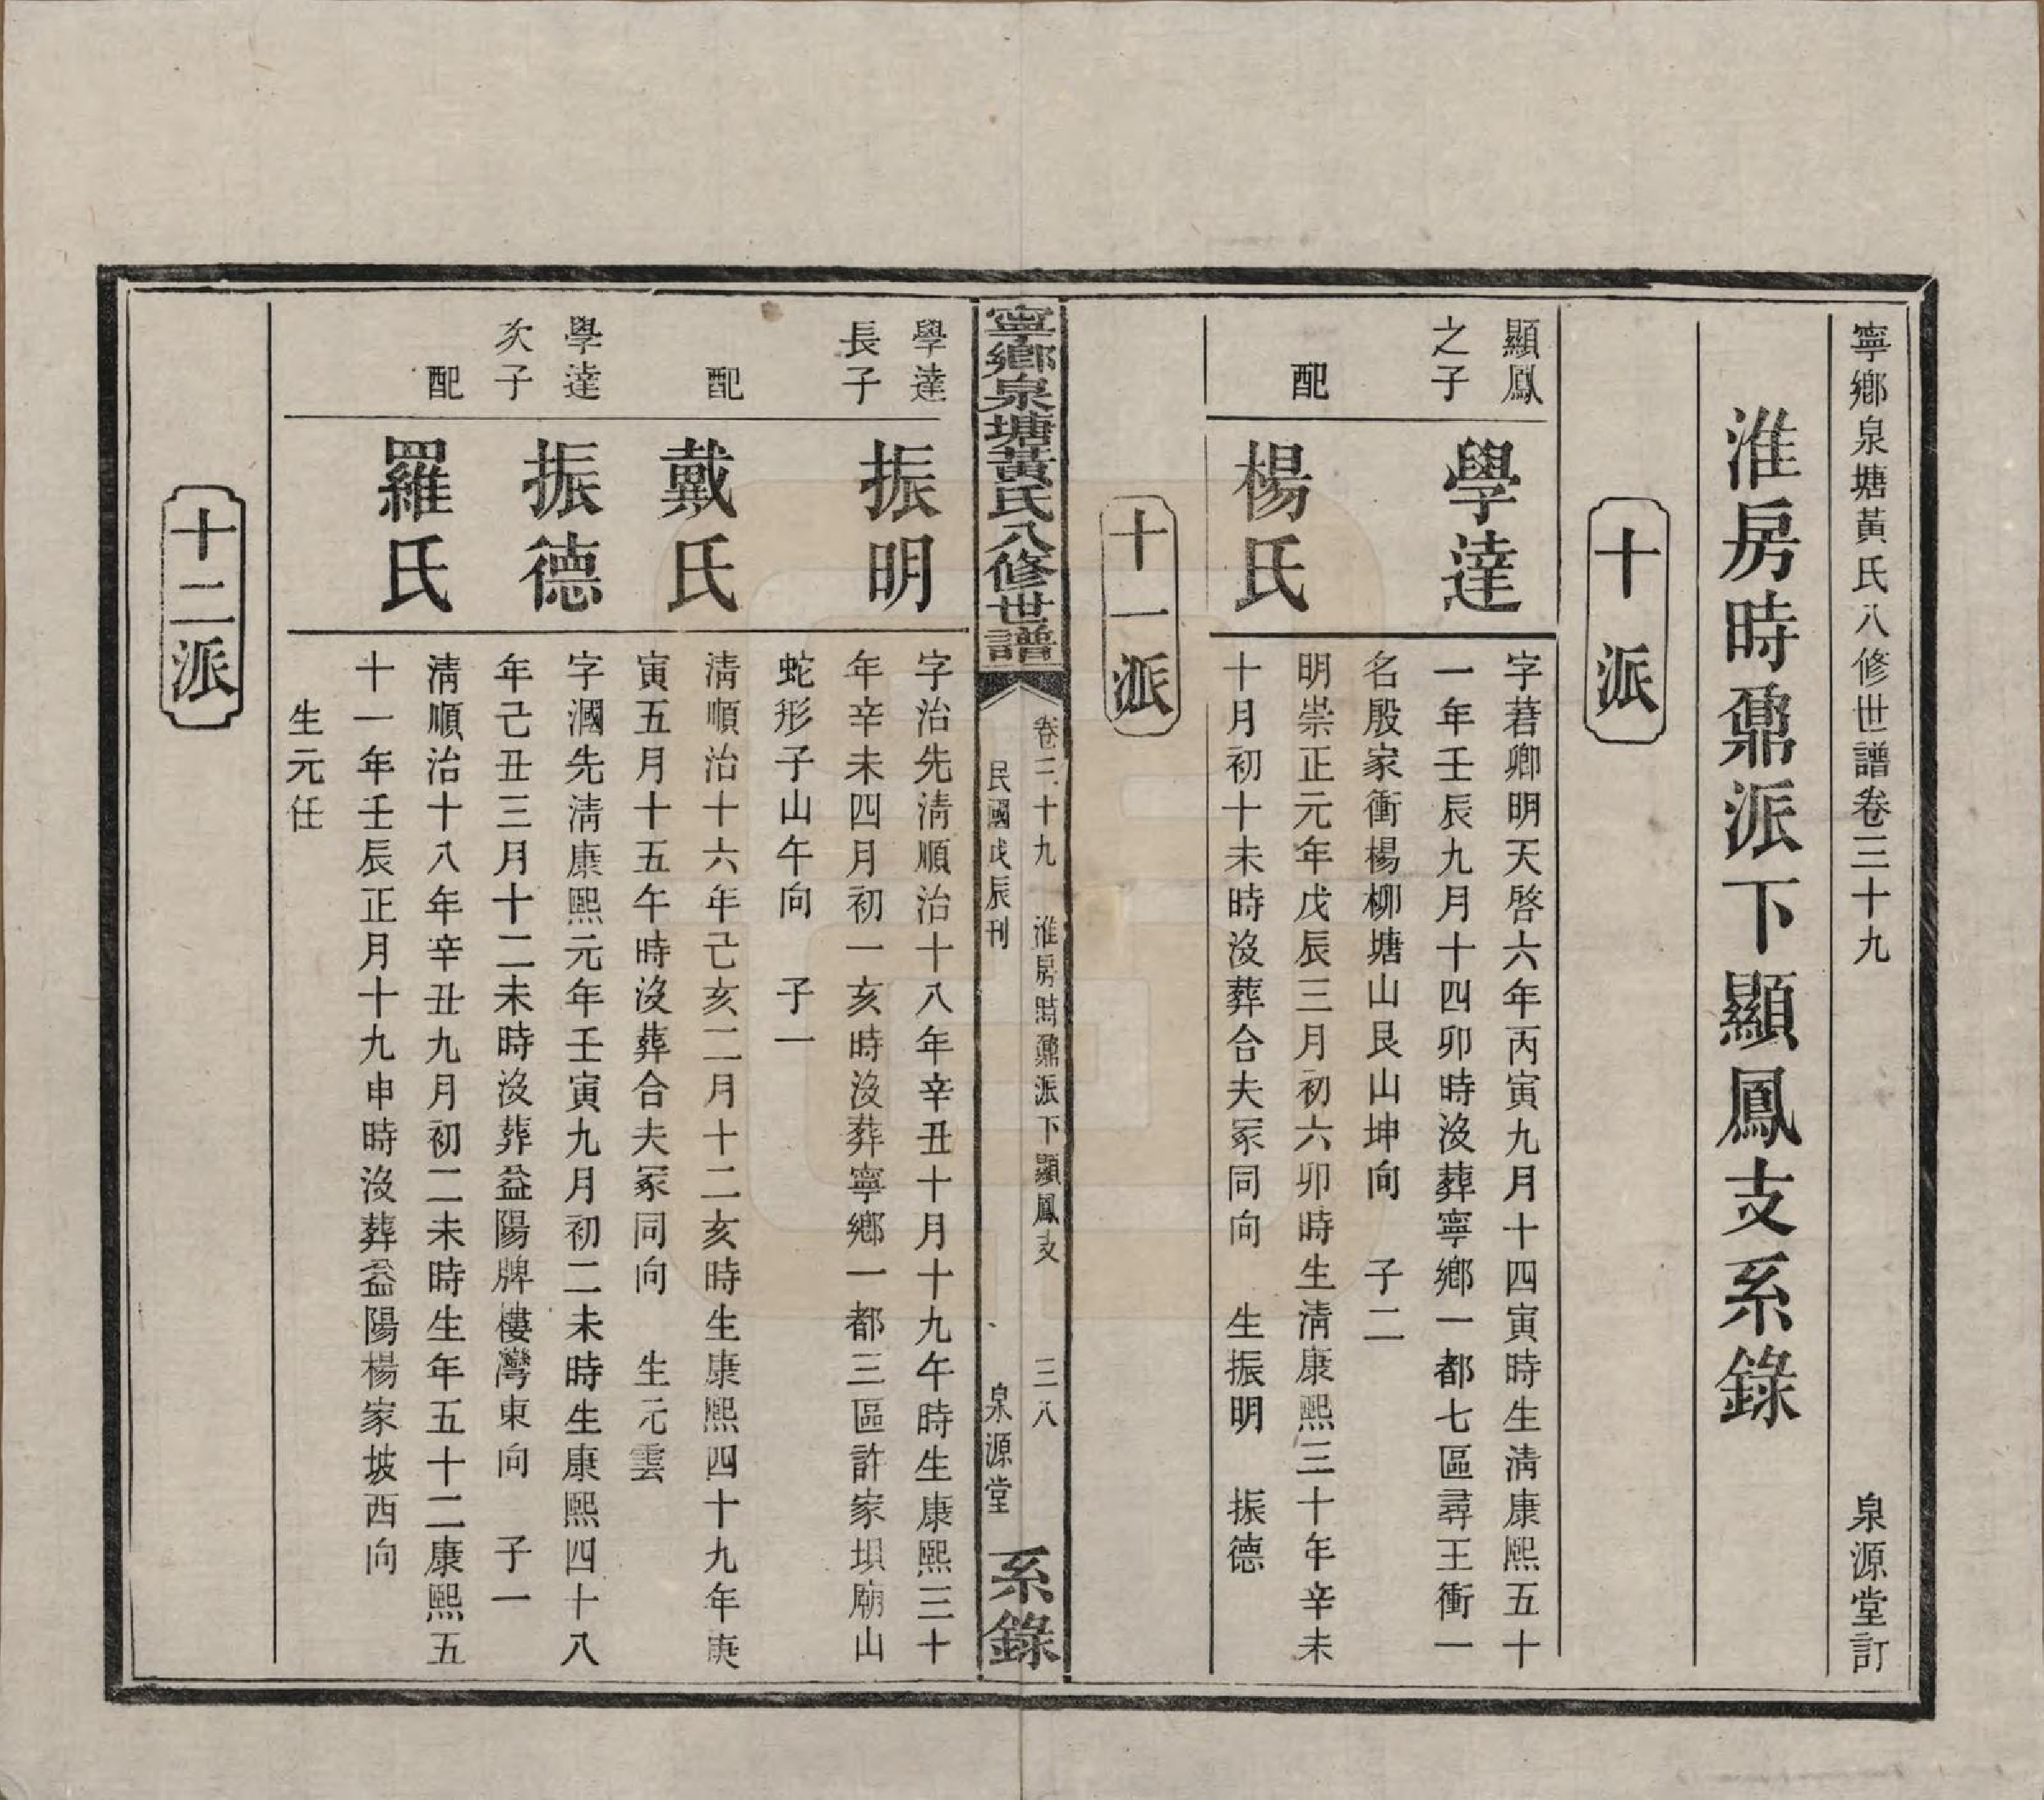 寧鄉泉塘黃氏八修世譜卷三十九
泉源堂訂
淮房時鼐派下顯鳳支系錄
十派
顯鳳
之子
學達
字著卿明天啓六年丙寅九月十四寅時生淸康熙五十
一年壬辰九月十四卯時沒葬寧鄉一都七區尋王衝一
名殷家衝楊柳塘山艮山坤向 子二
配
楊氏
明崇正元年戊辰三月初六卯時生淸康熙三十年辛未
十月初十未時沒葬合夫冢同向 生振明 振德
十一派
寧鄉泉塘黃氏八修世譜
卷三十九 淮房時鼐派下顯鳳支 三八
民國戊辰刊 泉源堂
系錄
學達
長子
振明
字治先淸順治十八年辛丑十月十九午時生康熙三十
年辛未四月初一亥時沒葬寧鄉一都三區許家坝廟山
蛇形子山午向 子一
配
戴氏
淸順治十六年己亥二月十二亥時生康熙四十九年庚
寅五月十五午時沒葬合夫冢同向 生元雲
學達
次子
振德
字漍先淸康熙元年壬寅九月初二未時生康熙四十八
年己丑三月十二未時沒葬益陽牌樓灣東向 子一
配
羅氏
淸順治十八年辛丑九月初二未時生年五十二康熙五
十一年壬辰正月十九申時沒葬益陽楊家坡西向
生元任
十二派